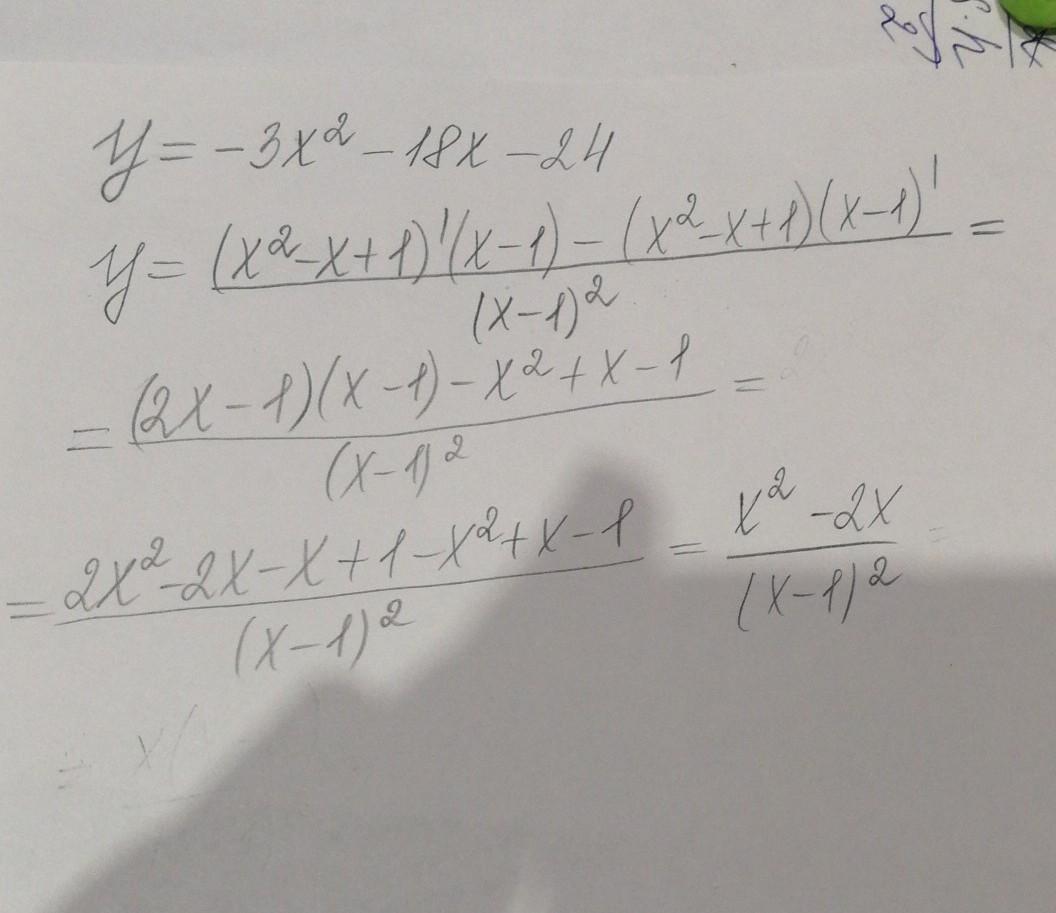 y = -3x² - 18x - 24
y = (x² - x + 1)'(x - 1) - (x² - x + 1)(x - 1)' / (x - 1)² =
= (2x - 1)(x - 1) - x² + x - 1 / (x - 1)² =
= 2x² - 2x - x + 1 - x² + x - 1 / (x - 1)² = x² - 2x / (x - 1)²